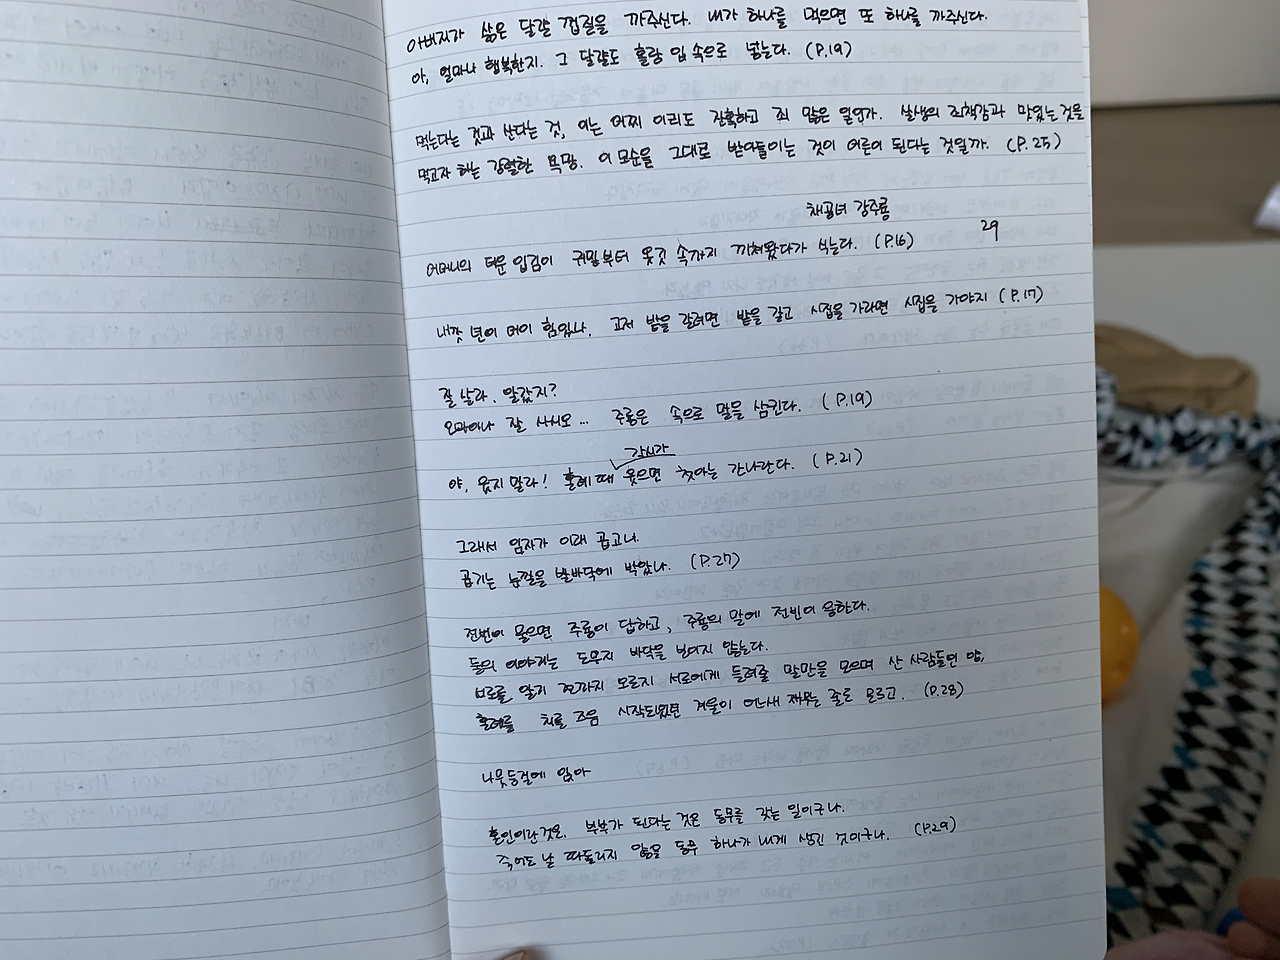 아버지가 삶은 달걀 껍질을 까주신다. 내가 하나를 먹으면 또 하나를 까주신다.
아, 얼마나 행복한지. 그 달걀도 홀랑 입 속으로 넣는다. (P.19)
먹는다는 것과 산다는 것, 이는 어찌 이리도 잔혹하고 죄 많은 일인가. 살생의 죄책감과 맛있는 것을
먹고자 하는 강렬한 욕망. 이 모순을 그대로 받아들이는 것이 어른이 된다는 것일까. (P.25)
체공녀 강주룡
29
어머니의 더운 입김이 귀밑부터 옷깃 속까지 끼쳐왔다가 식는다. (P.16)
내깟 년이 머이 힘있나. 고저 밭을 갈려면 밭을 갈고 시집을 가라면 시집을 가야지 (P.17)
잘 살라. 알갔지?
오마이나 잘 사시오... 주룡은 속으로 말을 삼킨다. (P.19)
각시가
야. 웃지 말라! 혼례 때 웃으면 첫아는 간나란다. (P.21)
그래서 임자가 이래 곱고나.
곱기는 눈깔을 발바닥에 박았나. (P.27)
전빈이 물으면 주룡이 답하고, 주룡의 말에 전빈이 응한다.
둘의 이야기는 도무지 바닥을 보이지 않는다.
서로를 알기 전까지 오로지 서로에게 들려줄 말만을 모으며 산 사람들인 양,
혼례를 치를 즈음 시작되었던 겨울이 어느새 저무는 줄도 모르고. (P.28)
나뭇등걸에 앉아
혼인이란 것은. 부부가 된다는 것은 동무를 갖는 일이구나.
죽어도 날 따돌리지 않을 동무 하나가 내게 생긴 것이구나. (P.29)